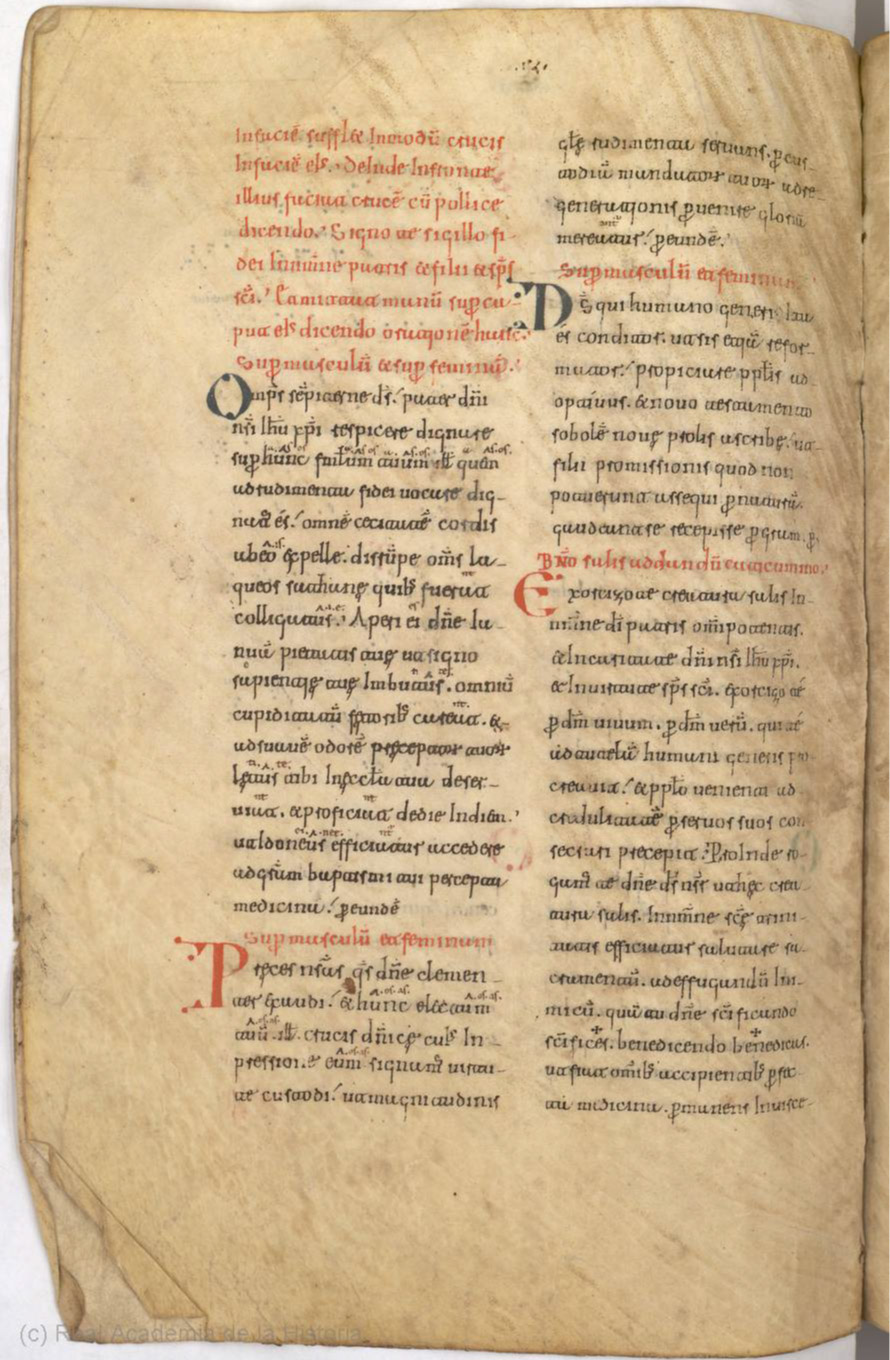 In faciē suffl& In modū crucis
In faciē eī. deInde In fronte
illius faciat crucē cū pollice
dicendo. Signo te sigillo fi-
dei In nm̄ne patris & filii & sp̄s
sc̄i. & mittat manū sup̄ ca-
put eī dicendo orationē hanc.
Sup̄ masculū & sup̄ feminā.
Omp̄s sēpiterne ds̄. pater dn̄i
nr̄i Ihū xp̄i respicere dignare
sup̄ hunc famulum tuum ill̄ quem
ad rudimenta fidei uocare dig-
natꝰ es. omnē cecitatē cordis
ab eo expelle. disrūpe om̄s la-
queos satanę quibꝰ fuerat
colligatus. Aperi ei dn̄e ia-
nuā pietatis tuę ut signo
sapientię tuę Inbutus. omniū
cupiditatū fetoribꝰ careat. &
ad suauē odorē preceptorū tuorū
lętus tibi In ęcclā tua deser-
uiat. & proficiat de die In diem.
ut idoneus efficiatur accedere
ad grām baptismi tui percepta
medicina. p̄ eundē
Sup masculū et feminam
Preces nr̄as qs̄ dn̄e clemen-
ter exaudi. & hunc electum
tuū. ill̄. crucis dn̄icę cuiꝰ In-
pressione eum signamꝰ uirtu-
te custodi. ut magnitudinis
glę rudimenta seruans. p̄ cus-
todiā mandatorū tuorū ad re-
generationis p̄uenire gloriā
mereatur. p̄ eundē.
Sup masculū et feminam
Dꝰ qui humano generis ita
es conditor. ut sis etiā refor-
mator. propiciare pp̄lis ad-
optiuis. & nouo testamento
sobolē nouę prolis ascribe. ut
filii promissionis quod non
potuerunt assequi p̄ naturā.
gaudeant se recepisse p̄ gratiam. p̄
BN̄O salis ad dandū caticumino.
Exorcizo te creatura salis In
nm̄ine dī patris om̄ipotentis.
& In caritate dn̄i nr̄i Ihū xp̄i.
& In uirtute sp̄s sc̄i. exorcizo te
p̄ dm̄ uiuum. p̄ dm̄ uerū. qui te
ad tutelā humani generis pro
creauit. & pp̄lo uenienti ad
credulitatē p̄ seruos suos con-
secrari precepit. Proinde ro-
gamꝰ te dn̄e ds̄ nr̄ ut hęc crea-
tura salis. In nm̄ne scę trini-
tatis efficiatur salutare sa-
cramentū. ad effugandū Ini-
micū. quā tu dn̄e sc̄ificando
sc̄ifices. benedicendo benedicas.
ut fiat om̄ibꝰ accipientibꝰ p̄fec-
ta medicina. p̄manens In uisce-